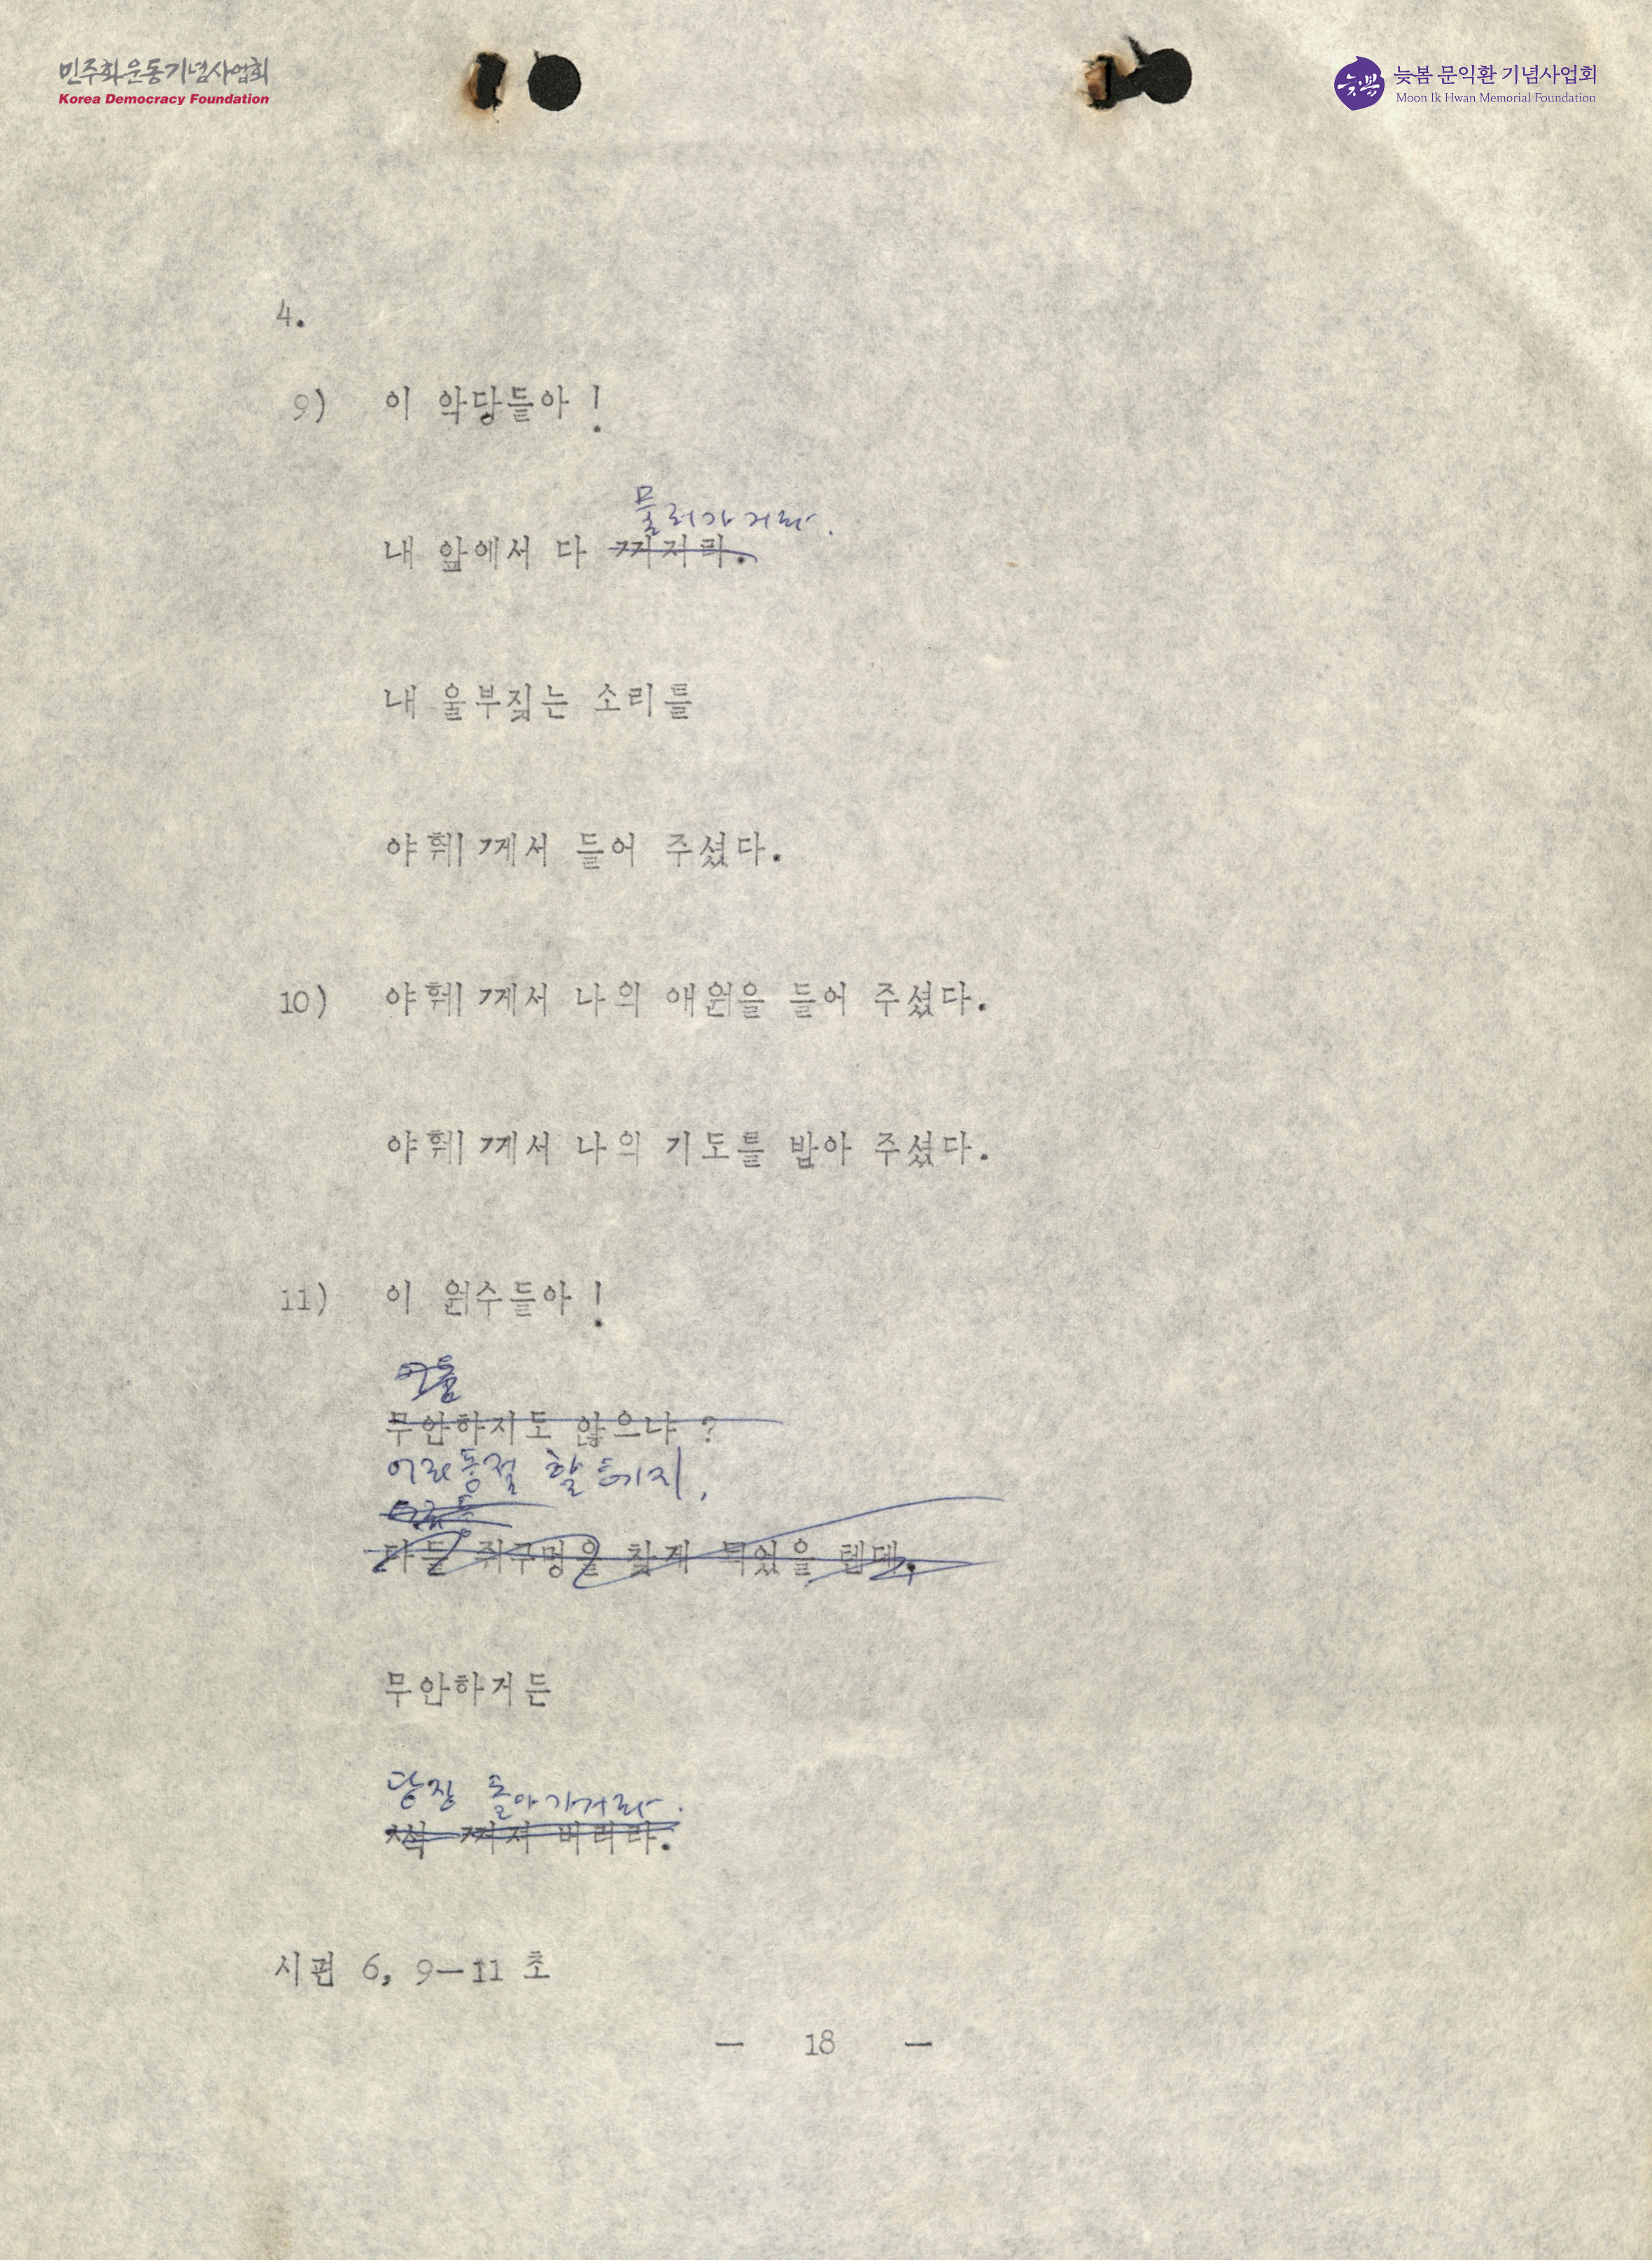 민주화운동기념사업회
Korea Democracy Foundation
늦봄
늦봄 문익환 기념사업회
Moon Ik Hwan Memorial Foundation
4.
9) 이 악당들아!
물러가거라.
내 앞에서 다 꺼지라.
내 울부짖는 소리를
야훼께서 들어 주셨다.
10) 야훼께서 나의 애원을 들어 주셨다.
야훼께서 나의 기도를 받아 주셨다.
11) 이 원수들아!
무안하지도 않으냐?
할 테지,
다들 쥐구멍을 찾게 되었을 텐데,
무안하거든
당장 돌아가거라.
썩 꺼져 버리라.
시편 6, 9-11 초
- 18 -